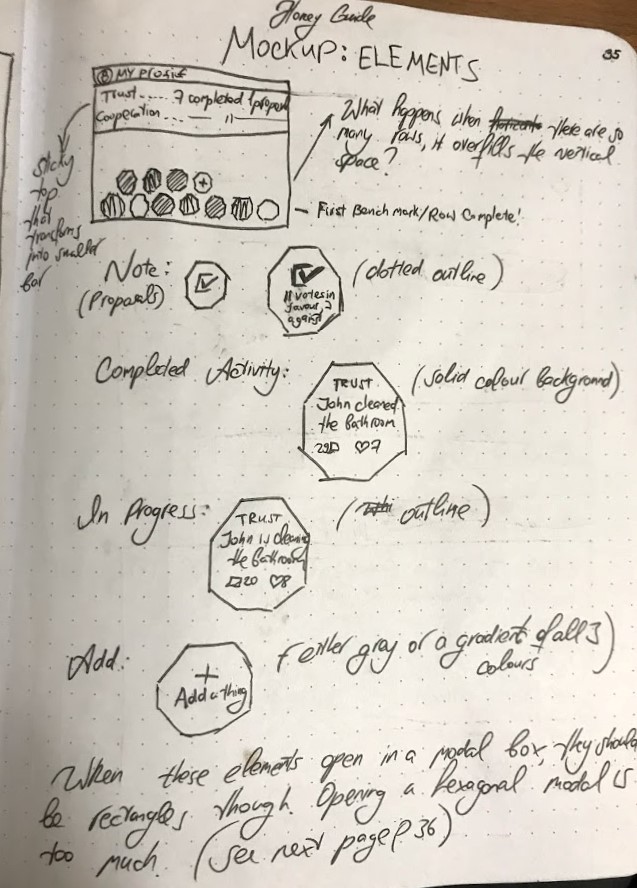 Honey Guide
MOCKUP: ELEMENTS
35
MY PROFILE
Trust..... 7 completed 1 propos
Cooperation .... — 11 —
What happens when there are so
many rows, it overfills the vertical
space?
sticky
top
that
transforms
into smaller
bar
First Bench mark/Row Complete!
Note:
(Proposals)
11 votes in
favour, 2
against
(dotted outline)
Completed Activity:
TRUST
John cleaned
the bathroom
7
(solid colour background)
In Progress:
TRUST
John is cleaning
the bathroom
20 8
( outline)
Add:
+
Add a thing
(either gray or a gradient of all 3
colours)
When these elements open in a modal box, they should
be rectangles though. Opening a hexagonal modal is
too much. (see next page P. 36)